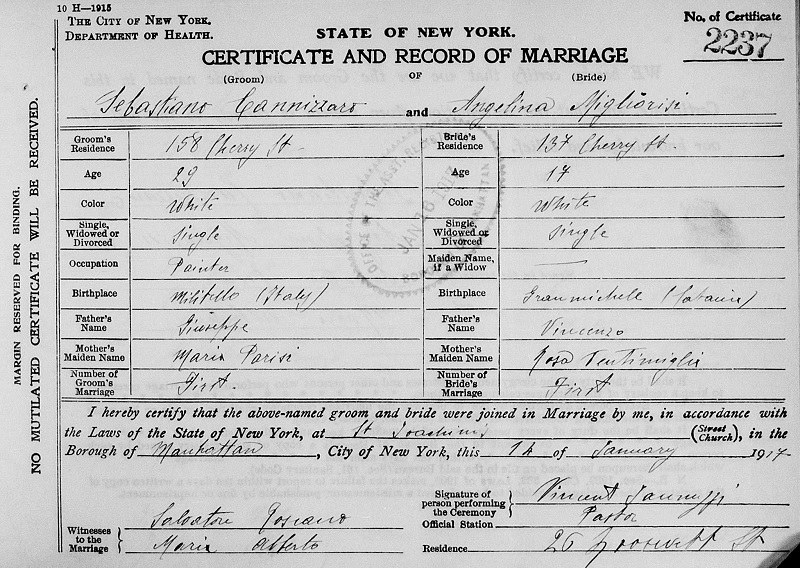 10 H—1915
THE CITY OF NEW YORK.
DEPARTMENT OF HEALTH.
STATE OF NEW YORK.
No. of Certificate
2237
CERTIFICATE AND RECORD OF MARRIAGE
(Groom) OF (Bride)
Sebastiano Cannizzaro and Angelina Migliorisi
Groom's Residence 158 Cherry St Bride's Residence 137 Cherry St.
Age 29 Age 17
Color White Color White
Single, Widowed or Divorced Single Single, Widowed or Divorced Single
Occupation Painter Maiden Name, if a Widow —
Birthplace Militello (Italy) Birthplace Granmichele (Catania)
Father's Name Giuseppe Father's Name Vincenzo
Mother's Maiden Name Maria Parisi Mother's Maiden Name Rosa Ventimiglia
Number of Groom's Marriage First. Number of Bride's Marriage First
I hereby certify that the above-named groom and bride were joined in Marriage by me, in accordance with
the Laws of the State of New York, at St Joachim's (Street Church), in the
Borough of Manhattan, City of New York, this 14 of January 1917
Signature of person performing the Ceremony Vincent
Official Station Pastor
Witnesses to the Marriage Salvatore
Maria Alberto
Residence 26 Roosevelt St
MARGIN RESERVED FOR BINDING.
NO MUTILATED CERTIFICATE WILL BE RECEIVED.